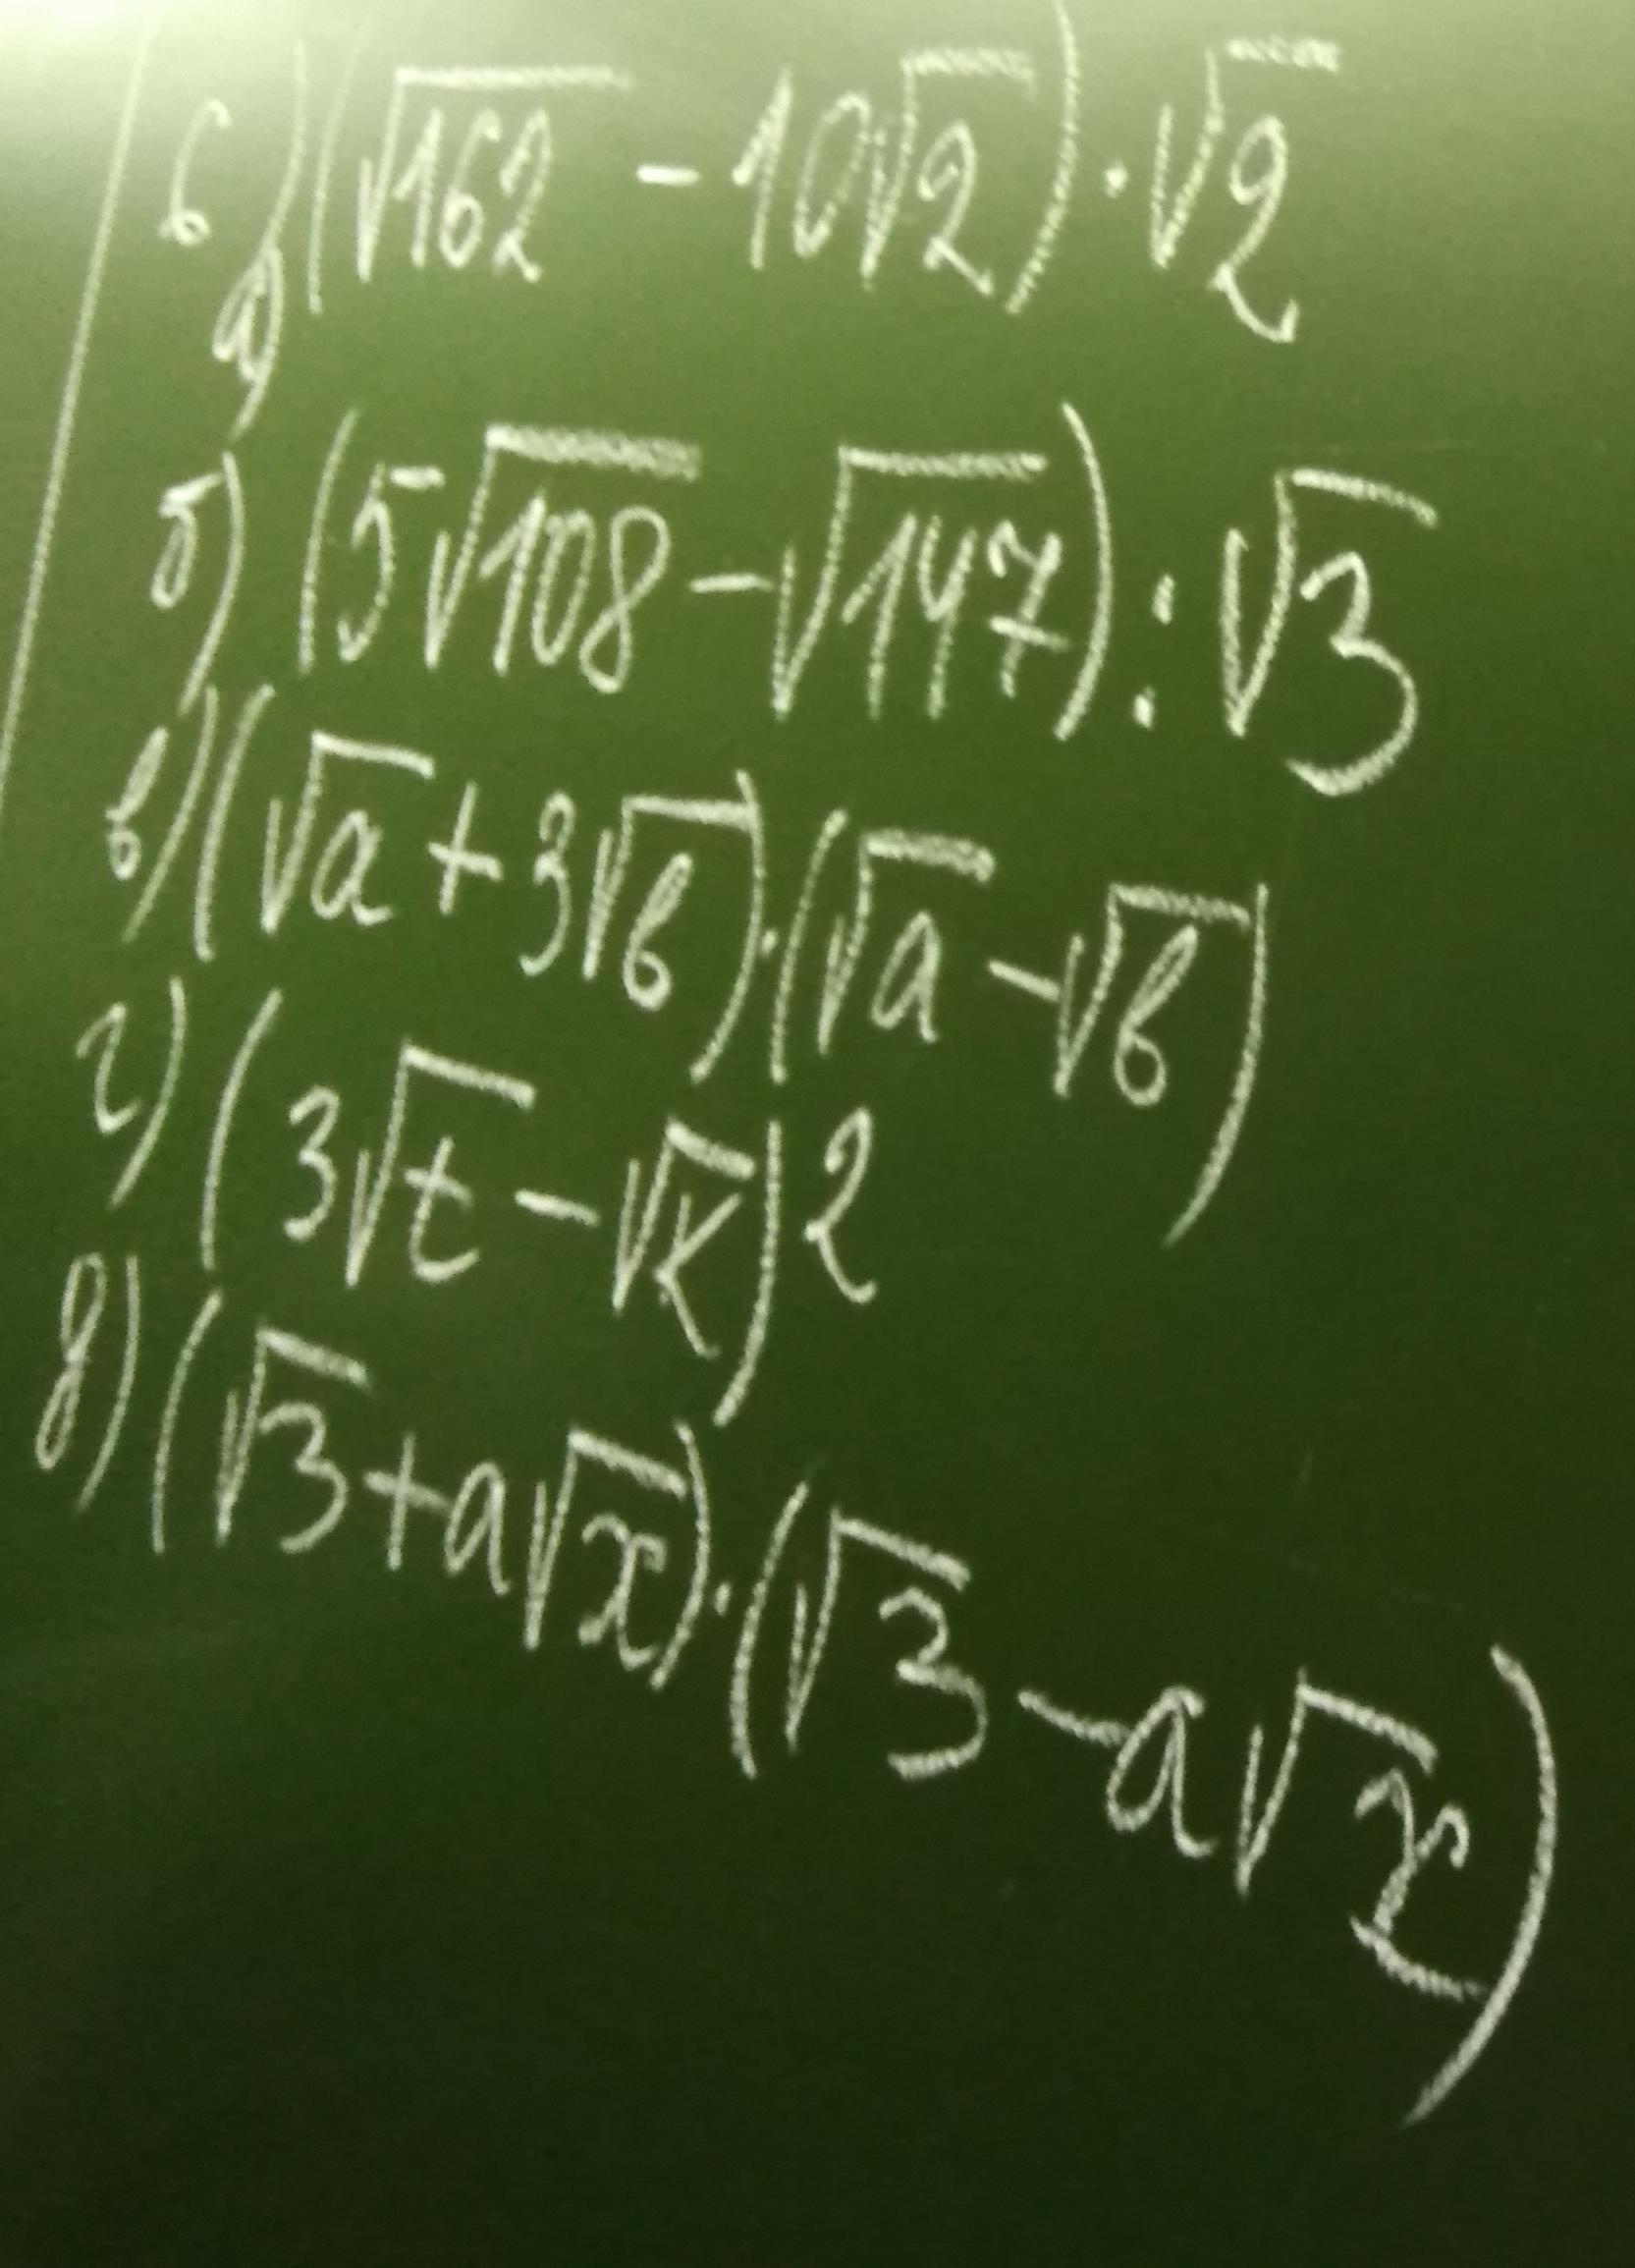 6) (√162 - 10√2) · √2
а)
б) (5√108 - √147) : √3
в) (√a + 3√b) · (√a - √b)
г) (3√t - √k)2
д) (√3 + a√x) · (√3 - a√x)